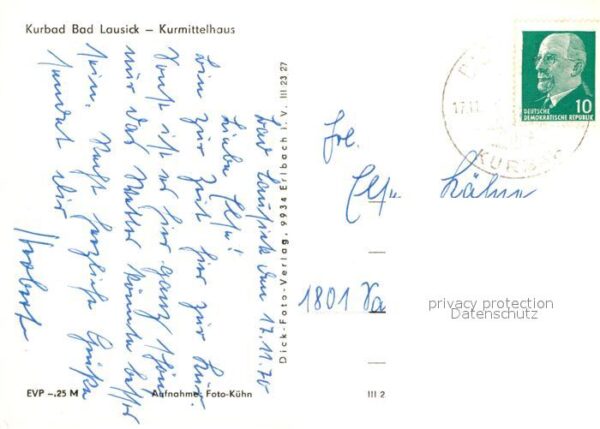 Kurbad Bad Lausick – Kurmittelhaus
Bad Lausick den 17.11.70
Liebe Elfr!
bin zur Zeit hier zur Kur.
Sonst ist es hier ganz schön
nur das Wetter könnte besser
sein. Recht herzliche Grüße
sendet Dir
EVP –,25 M
Aufnahme: Foto-Kühn
Dick-Foto-Verlag, 9934 Erlbach i. V. III 23 27
III 2
17.11.
KURBAD
DEUTSCHE
DEMOKRATISCHE REPUBLIK
10
Frl.
1801
privacy protection
Datenschutz